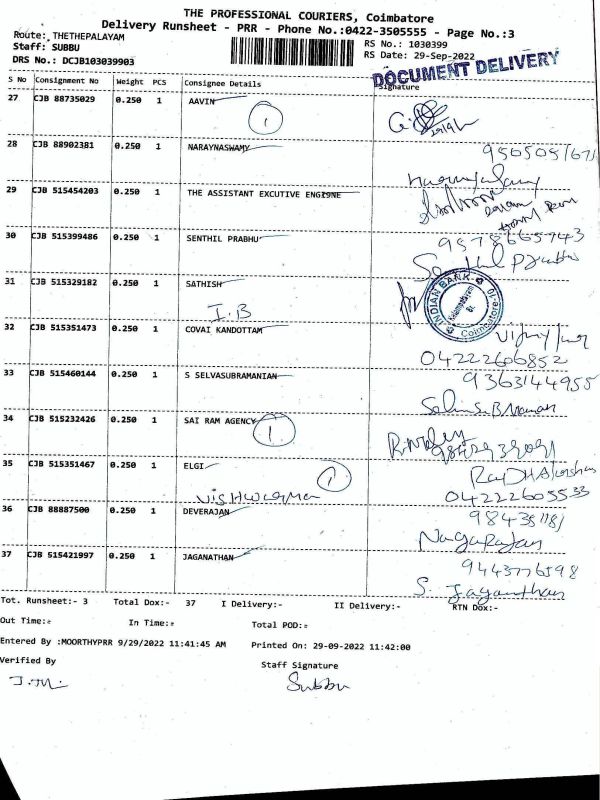 THE PROFESSIONAL COURIERS, Coimbatore
Delivery Runsheet - PRR - Phone No.:0422-3505555 - Page No.:3
Route: THETHEPALAYAM
Staff: SUBBU
RS No.: 1030399
DRS No.: DCJB103039903
RS Date: 29-Sep-2022
DOCUMENT DELIVERY
S No Consignment No Weight PCS Consignee Details Signature
27 CJB 88735029 0.250 1 AAVIN
1
28 CJB 88902381 0.250 1 NARAYNASWAMY
29 CJB 515454203 0.250 1 THE ASSISTANT EXCUTIVE ENGI9NE
30 CJB 515399486 0.250 1 SENTHIL PRABHU 9578665743
31 CJB 515329182 0.250 1 SATHISH
INDIAN BANK
Coimbatore-10
I.B
32 CJB 515351473 0.250 1 COVAI KANDOTTAM
04222606852
33 CJB 515460144 0.250 1 S SELVASUBRAMANIAN 9363144955
34 CJB 515232426 0.250 1 SAI RAM AGENCY
1
35 CJB 515351467 0.250 1 ELGI
1
04222605533
36 CJB 88887500 0.250 1 DEVERAJAN
Nagarajan
37 CJB 515421997 0.250 1 JAGANATHAN 9443776598
S. Jaganthan
Tot. Runsheet:- 3 Total Dox:- 37 I Delivery:- II Delivery:- RTN Dox:-
Out Time:= In Time:= Total POD:=
Entered By :MOORTHYPRR 9/29/2022 11:41:45 AM Printed On: 29-09-2022 11:42:00
Verified By Staff Signature
Subbu